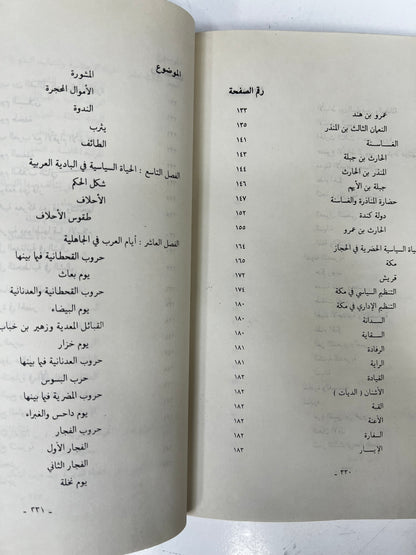 رقم الصفحة
عمرو بن هند ١٣٣
النعمان الثالث بن المنذر ١٣٥
الغساسنة ١٤١
الحارث بن جبلة ١٤٣
المنذر بن الحارث ١٤٤
جبلة بن الأيهم ١٤٦
حضارة المناذرة والغساسنة ١٤٧
دولة كندة ١٥٢
الحارث بن عمرو ١٥٥
السياسية الحضرية في الحجاز ١٦٤
مكة ١٦٥
قريش ١٧٢
التنظيم السياسي في مكة ١٧٤
التنظيم الإداري في مكة ١٨٠
السدانة ١٨٠
السقاية ١٨٠
الرفادة ١٨١
الراية ١٨١
القيادة ١٨٢
الأشناق ( الديات ) ١٨٢
القبة ١٨٢
الأعنة ١٨٢
السفارة ١٨٢
الإيسار ١٨٣
- ٣٣٠ -
الموضوع
المشورة
الأموال المحجرة
الندوة
يثرب
الطائف
الفصل التاسع : الحياة السياسية في البادية العربية
شكل الحكم
الأحلاف
طقوس الأحلاف
الفصل العاشر : أيام العرب في الجاهلية
حروب القحطانية فيما بينها
يوم بعاث
حروب القحطانية والعدنانية
يوم البيضاء
القبائل المعدية وزهير بن خباب
يوم خزاز
حروب العدنانية فيما بينها
حرب البسوس
حروب المضرية فيما بينها
يوم داحس والغبراء
حروب الفجار
الفجار الأول
الفجار الثاني
يوم نخلة
- ٣٣١ -